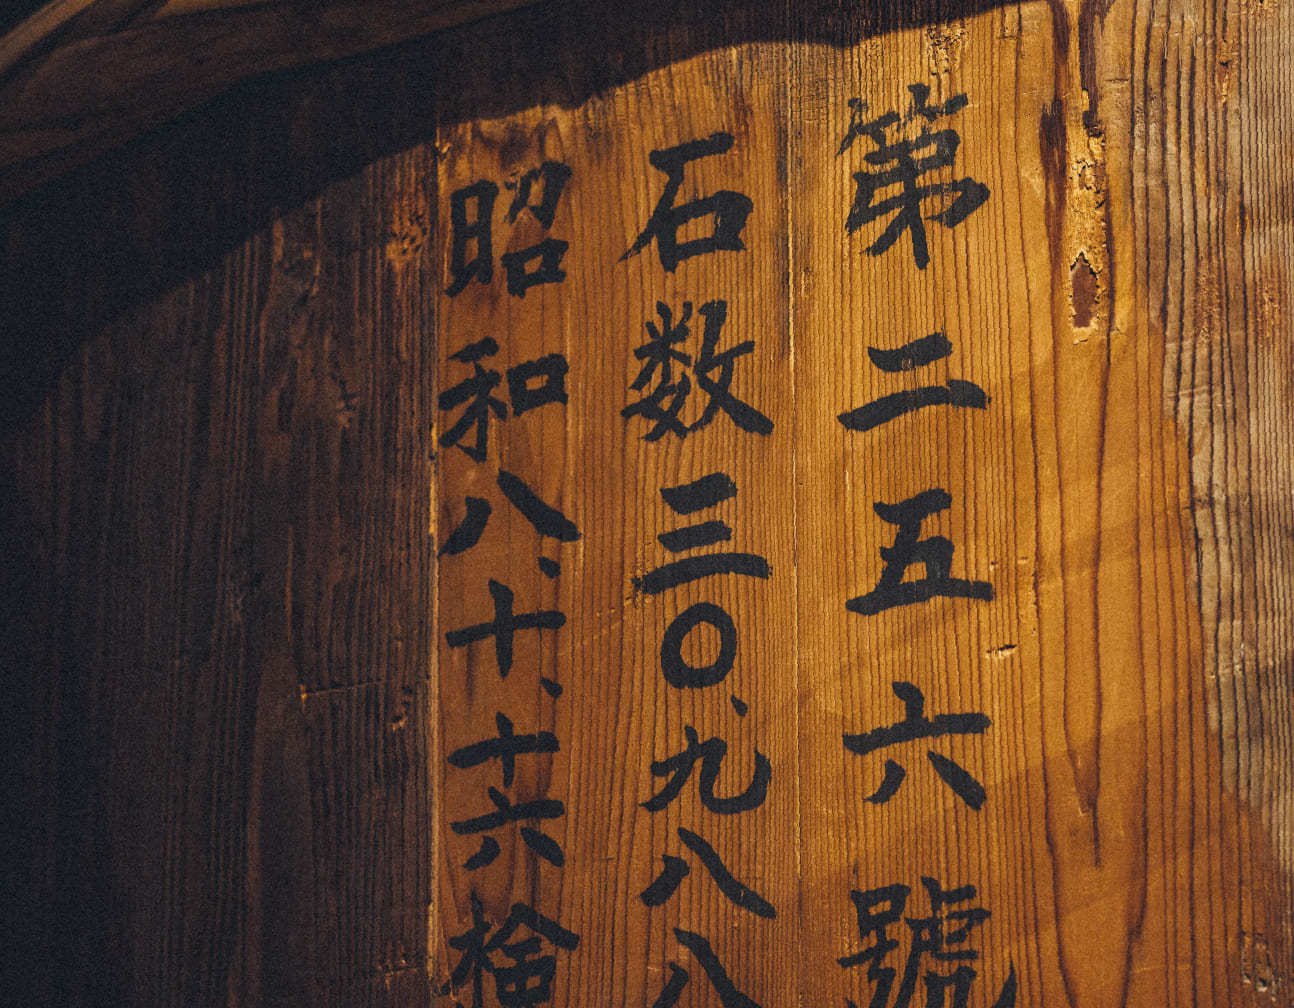 第二五六號
石数三〇、九八八
昭和八、十、十六検